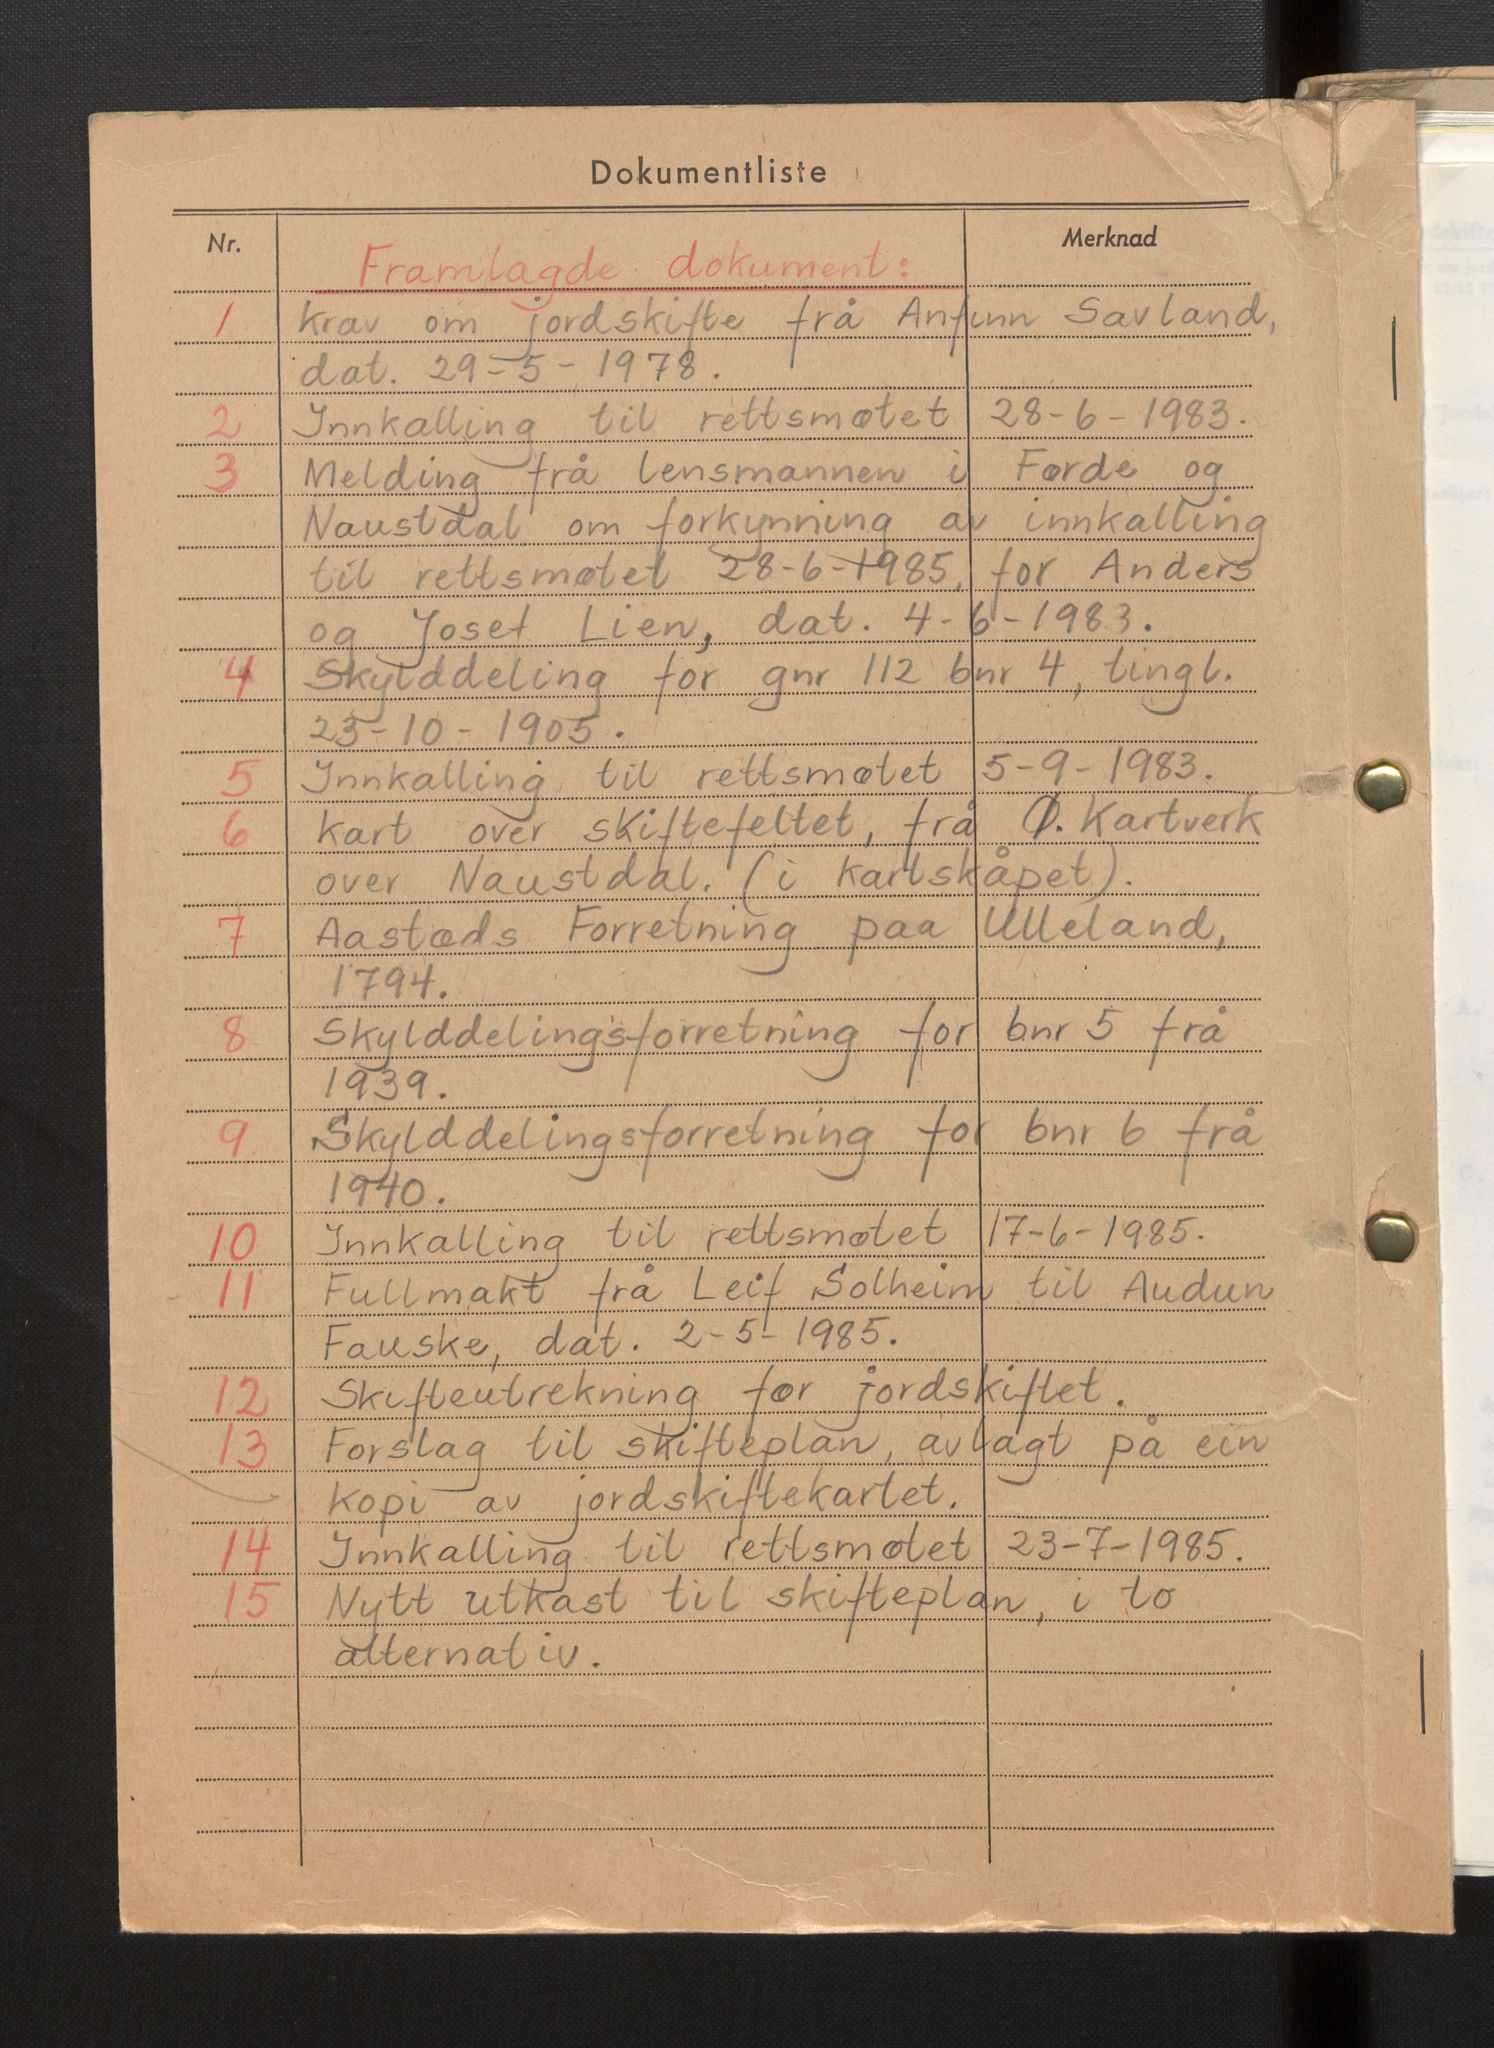 Dokumentliste
Nr. Merknad
Framlagde dokument:
1 Krav om jordskifte frå Anfinn Savland,
dat. 29-5-1978.
2 Innkalling til rettsmøtet 28-6-1983.
3 Melding frå lensmannen i Førde og
Naustdal om forkynning av innkalling
til rettsmøtet 28-6-1985, for Anders
og Josef Lien, dat. 4-6-1983.
4 Skylddeling for gnr 112 bnr 4, tingl.
23-10-1905.
5 Innkalling til rettsmøtet 5-9-1983.
6 Kart over skiftefeltet, frå Ø. Kartverk
over Naustdal. (i kartskåpet).
7 Aastæds Forretning paa Ulleland,
1794.
8 Skylddelingsforretning for bnr 5 frå
1939.
9 Skylddelingsforretning for bnr 6 frå
1940.
10 Innkalling til rettsmøtet 17-6-1985.
11 Fullmakt frå Leif Solheim til Audun
Fauske, dat. 2-5-1985.
12 Skifteutrekning for jordskiftet.
13 Forslag til skifteplan, avlagt på ein
kopi av jordskiftekartet.
14 Innkalling til rettsmøtet 23-7-1985.
15 Nytt utkast til skifteplan, i to
alternativ.